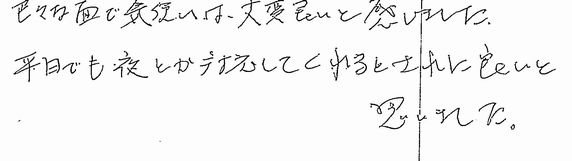 色々な面で気使いは、大変良いと感じました。
平日でも夜とか対応してくれるとさらに良いと
思いました。